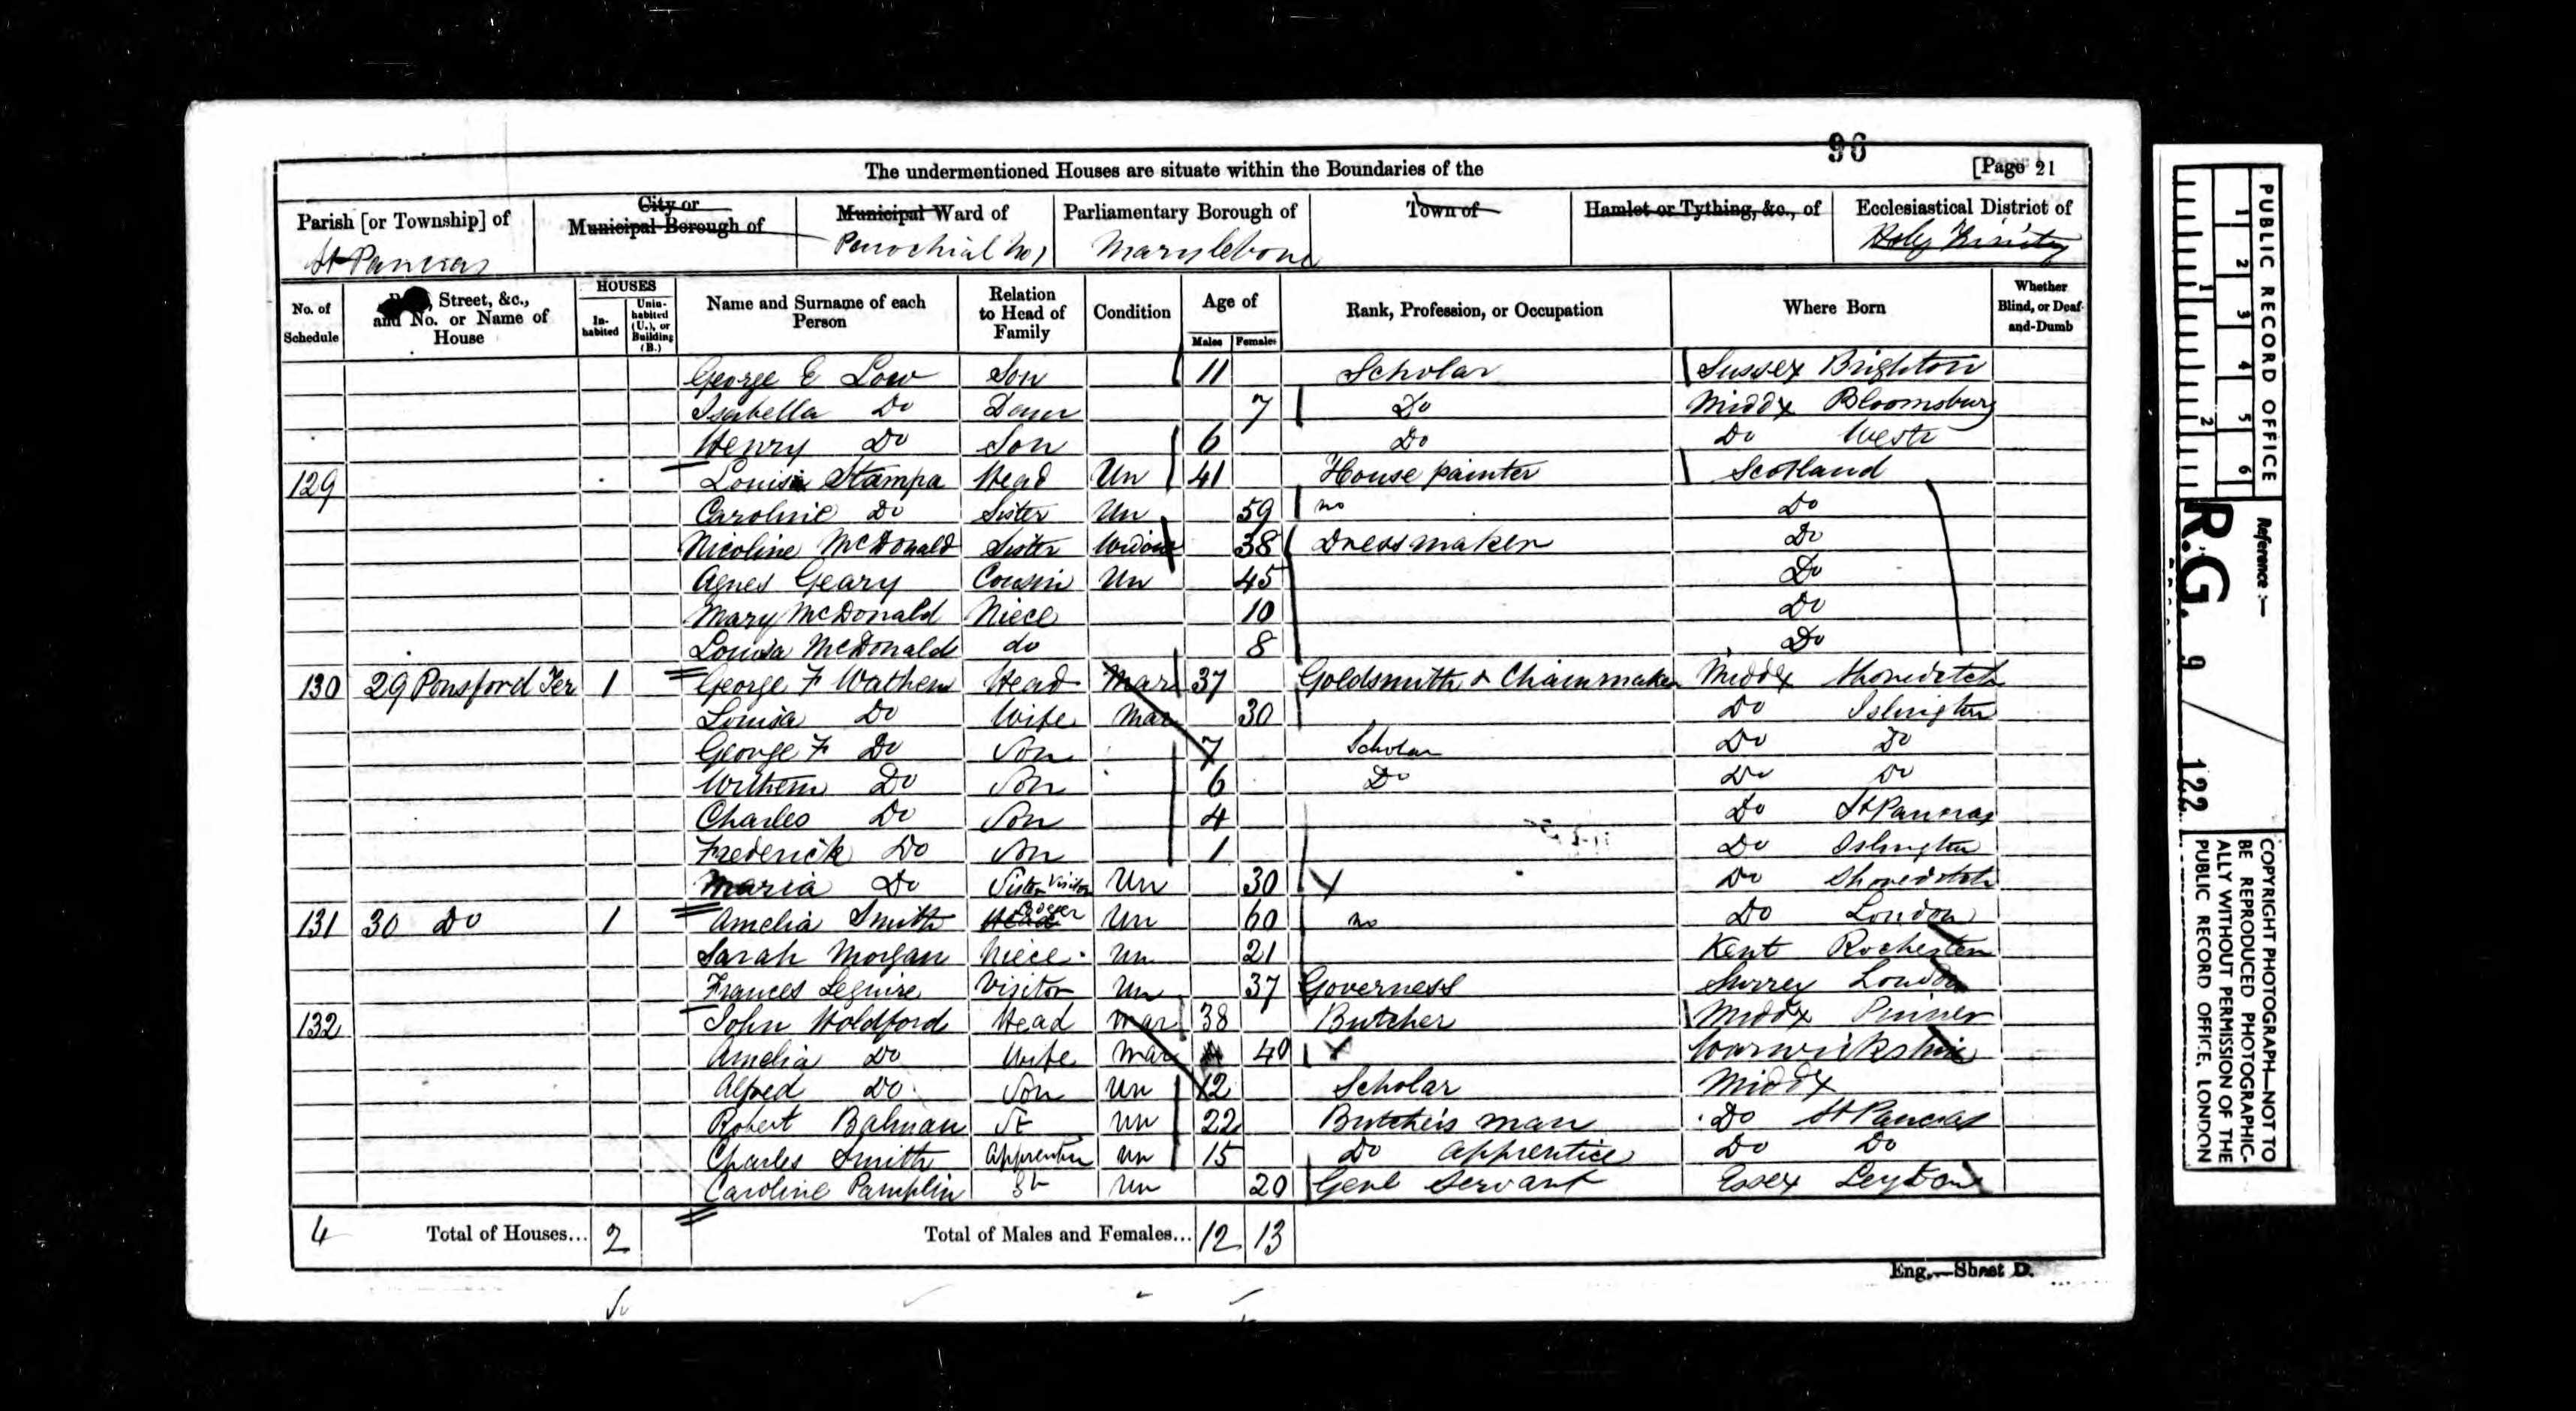 96
The undermentioned Houses are situate within the Boundaries of the [Page 21
Parish [or Township] of City or Municipal Borough of Municipal Ward of Parliamentary Borough of Town of Hamlet or Tything, &c., of Ecclesiastical District of
St Pancras Parochial No 1 Marylebone Holy Trinity
No. of Schedule Street, &c., and No. or Name of House HOUSES Inhabited Uninhabited (U.), or Building (B.) Name and Surname of each Person Relation to Head of Family Condition Age of Males Females Rank, Profession, or Occupation Where Born Whether Blind, or Deaf-and-Dumb
George E Low Son 11 Scholar Sussex Brighton
Isabella Do Daur 7 Do Middx Bloomsbury
Henry Do Son 6 Do Do Westr
129 Louisa Stampa Head Un 41 House painter Scotland
Caroline Do Sister Un 59 no Do
Nicoline McDonald Sister Widow 38 Dressmaker Do
Agnes Geary Cousin Un 45 Do
Mary McDonald Niece 10 Do
Louisa McDonald do 8 Do
130 29 Ponsford Ter 1 George F Wathem Head Mar 37 Goldsmith & Chainmaker Middx Shoreditch
Louisa Do Wife Mar 30 Do Islington
George F Do Son 7 Scholar Do Do
Do Son 6 Do Do Do
Charles Do Son 4 Do St Pancras
Frederick Do Son 1 Do Islington
Maria Do Sister Visitor Un 30 Do Shoreditch
131 30 Do 1 Amelia Smith Head Lodger Un 60 no Do London
Sarah Morgan Niece Un 21 Kent Rochester
Frances Leguire Visitor Un 37 Governess Surrey London
132 John Holdford Head Mar 38 Butcher Middx Pinner
Amelia Do Wife Mar 40 Warwickshire
Alfred Do Son Un 12 Scholar Middx
Robert Balman St Un 22 Butchers man Do St Pancras
Charles Smith Apprentice Un 15 Do Apprentice Do Do
Caroline Pamplin St Un 20 Genl Servant Essex Leyton
4 Total of Houses... 2 Total of Males and Females... 12 13
Eng.—Sheet D.
PUBLIC RECORD OFFICE
1 2 3 4 5 6
1 2
Reference :—
R.G. 9 / 122
COPYRIGHT PHOTOGRAPH—NOT TO
BE REPRODUCED PHOTOGRAPHIC-
ALLY WITHOUT PERMISSION OF THE
PUBLIC RECORD OFFICE, LONDON